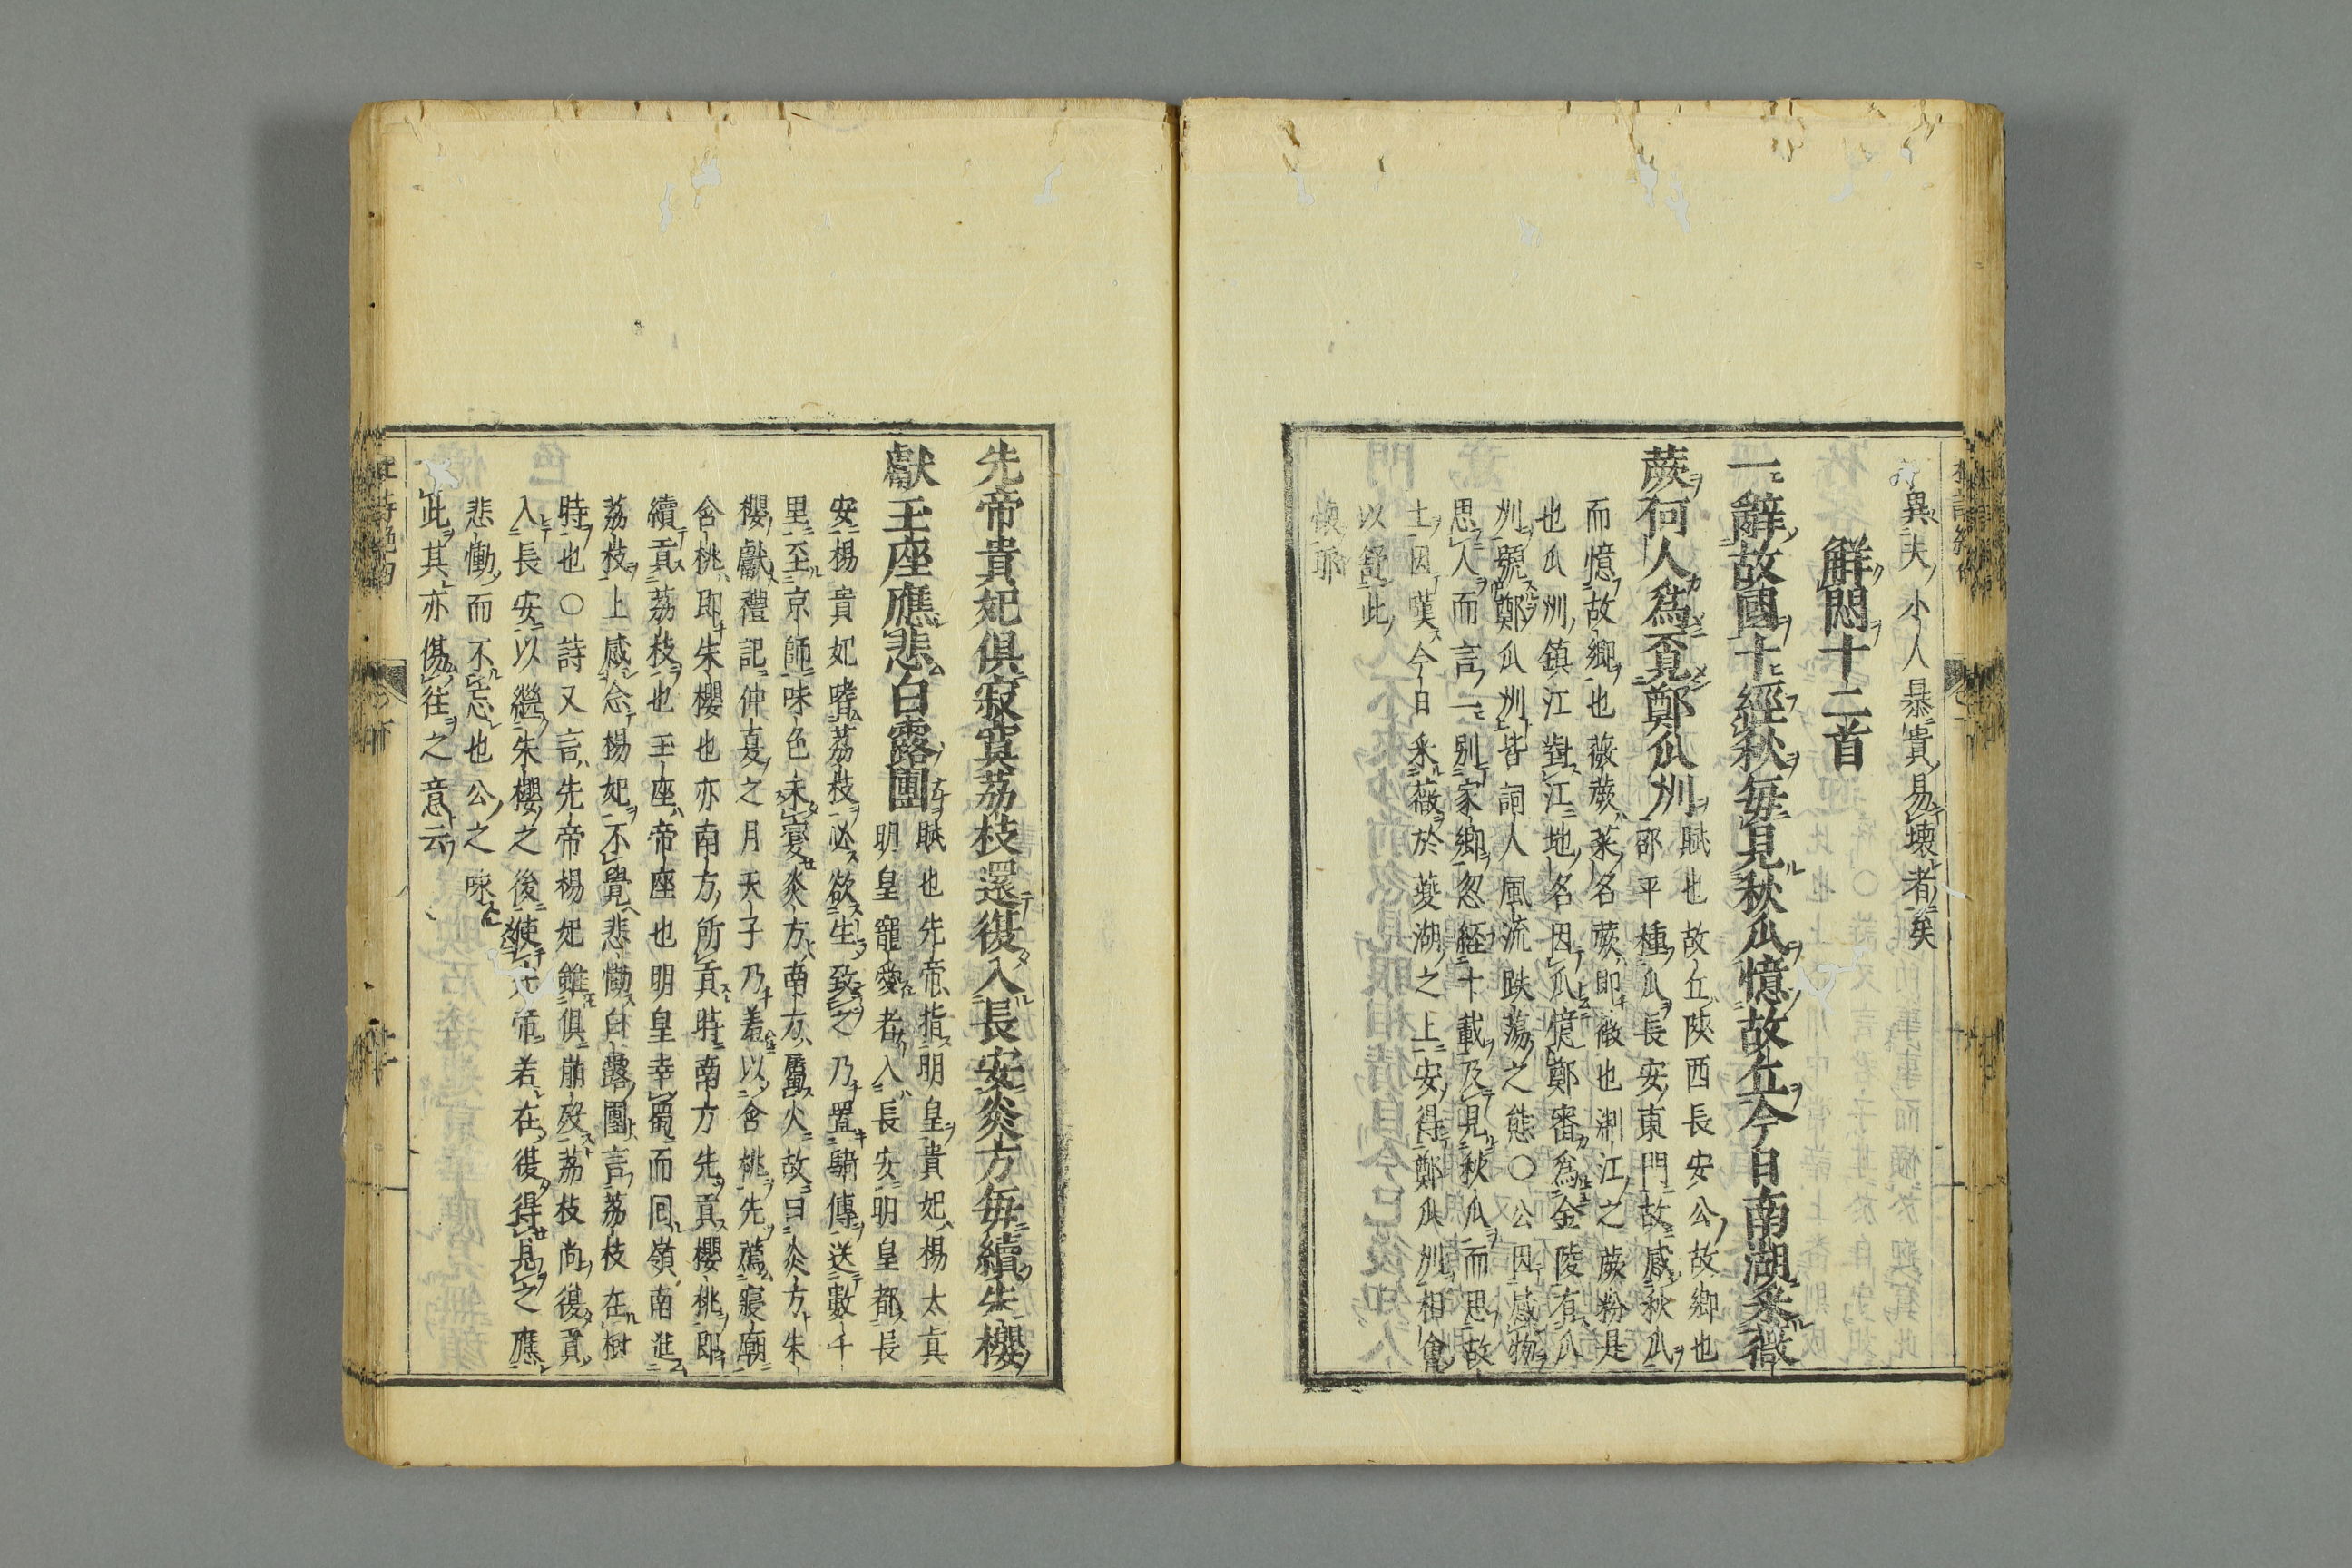 異夫小人暴貴易壞者矣
解悶十二首
一辭故國十經秋每見秋瓜憶故丘今日南湖采薇
蕨何人爲覓鄭瓜州
賦也故丘陝西長安公故鄉也
邵平種瓜長安東門故感秋瓜
而憶故鄉也薇蕨菜名蕨即薇也淛江之蕨粉是
也瓜洲鎮江對江地名因瓜憶鄭審爲金陵有瓜
州號鄭瓜州皆詞人風流跌蕩之態○公因感物
思人而言一別家鄉忽經十載及見秋瓜而思故
土因嘆今日采薇於夔湖之上安得鄭瓜洲相會
以舒此
懷耶
先帝貴妃俱寂寞荔枝還復入長安炎方每續朱櫻
獻玉座應悲白露團
賦也先帝指明皇貴妃楊太真
明皇寵愛者入長安明皇都長
安楊貴妃嗜荔枝必欲生致之乃置騎傳送數千
里至京師味色未變炎方南方屬火故曰炎方朱
櫻獻禮記仲夏之月天子乃羞以含桃先薦寢廟
含桃即朱櫻也亦南方所貢時南方先貢櫻桃即
續貢荔枝也玉座帝座也明皇幸蜀而回嶺南進
荔枝上感念楊妃不覺悲慟白露團言荔枝在樹
時也○詩又言先帝楊妃雖俱崩歿荔枝尚復貢
入長安以繼朱櫻之後使先帝若在復得見之應
悲慟而不忘也公之咏
此其亦傷往之意云